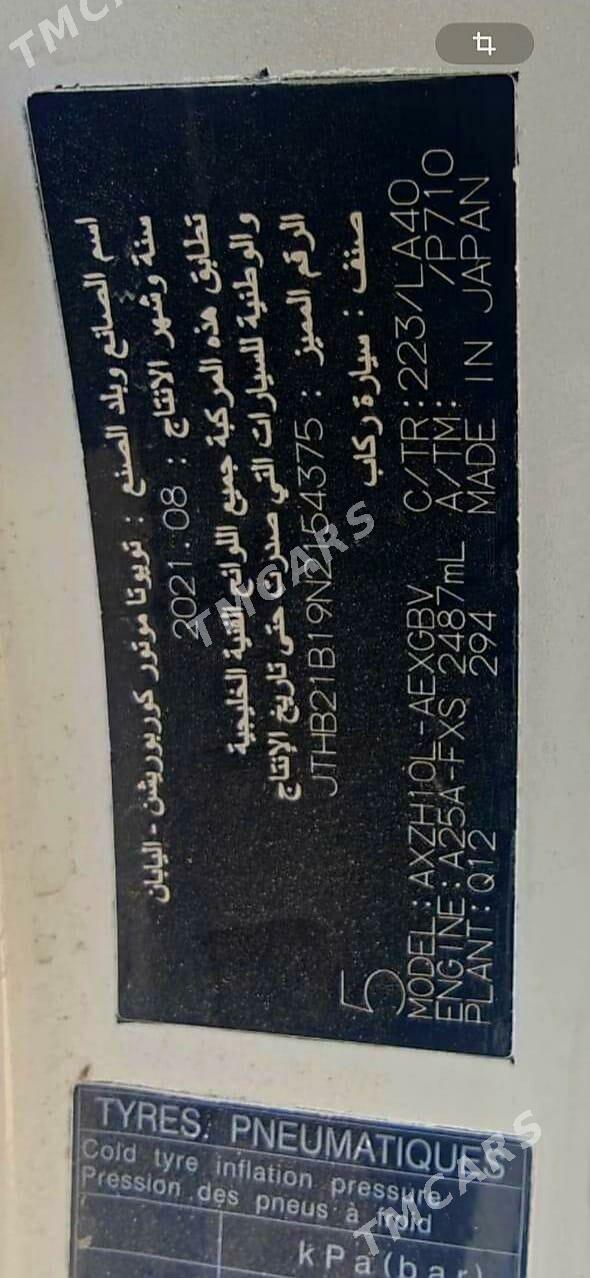 اسم الصانع وبلد الصنع : تويوتا موتور كوربوريشن - اليابان
سنة وشهر الانتاج : 2021.08
تطابق هذه المركبة جميع اللوائح الفنية الخليجية
والوطنية للسيارات التي صدرت حتى تاريخ الإنتاج
الرقم المميز : JTHB21B19N2154375
صنف : سيارة ركاب
5
MODEL:AXZH10L-AEXGBV C/TR:223/LA40
ENGINE:A25A-FXS 2487mL A/TM: /P710
PLANT:Q12 294 MADE IN JAPAN
TYRES. PNEUMATIQUES
Cold tyre inflation pressure
Pression des pneus à froid
kPa(bar)
TMCARS
TMCARS